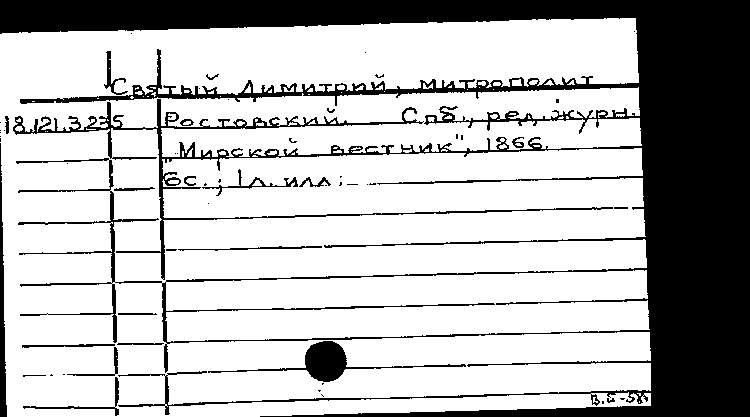 Святый Димитрий, митрополит
18.121.3.235 Ростовский. Спб., ред. журн.
"Мирской вестник", 1866.
6с.; 1л. илл.